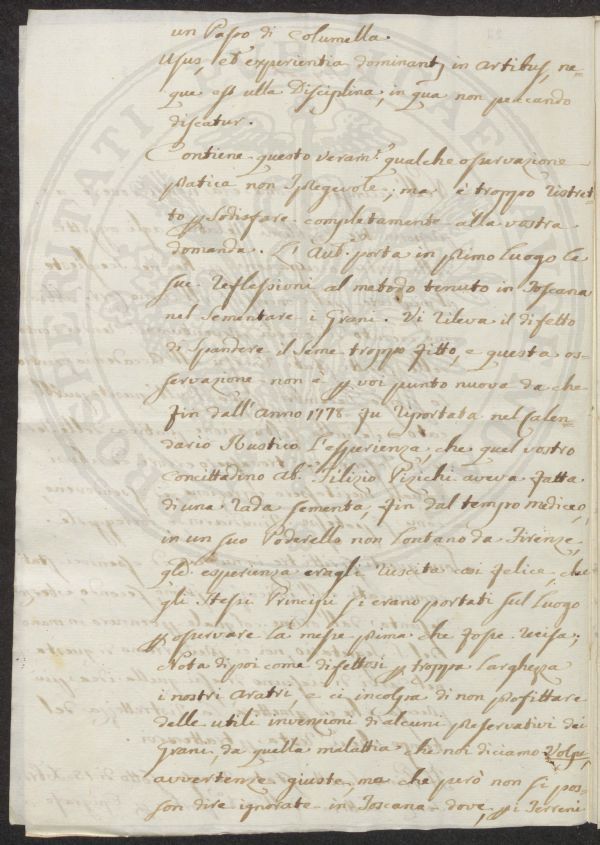 un Passo di Columella.
Usus, et experientia dominantj in artibus, ne=
que est ulla Disciplina, in qua non peccando
discatur.
Contiene questo veram.e qualche osservazione
pratica non ispregevole; ma è troppo ristret=
to p sodisfare completamente alla vostra
domanda. L'Aut. porta in primo luogo le
sue reflessioni al metodo tenuto in Toscana
nel sementare i Grani. Vi rileva il difetto
di spandere il seme troppo fitto, e questa os=
servazione non è p voi punto nuova da che
fin dall'Anno 1778 fu riportata nel Calen=
dario Rustico l'esperienza, che quel vostro
Concittadino Ab. Filizio Pizichi aveva fatta
di una rada sementa, fin dal tempo mediceo,
in un suo Poderello non lontano da Firenze,
esperienza eragli riuscita così felice, che
gli stessi Principi si erano portati sul luogo
p osservare la messe prima che fosse recisa;
Nota di poi come difettosi p troppa larghezza
i nostri aratri, e ci incolpa di non profittare
delle utili invenzioni di alcuni preservativi dei
Grani, da quella malattia che noi diciamo Volpe,
avvertenze giuste, ma che però non si pos=
son dire ignorate in Toscana dove, p i Terreni